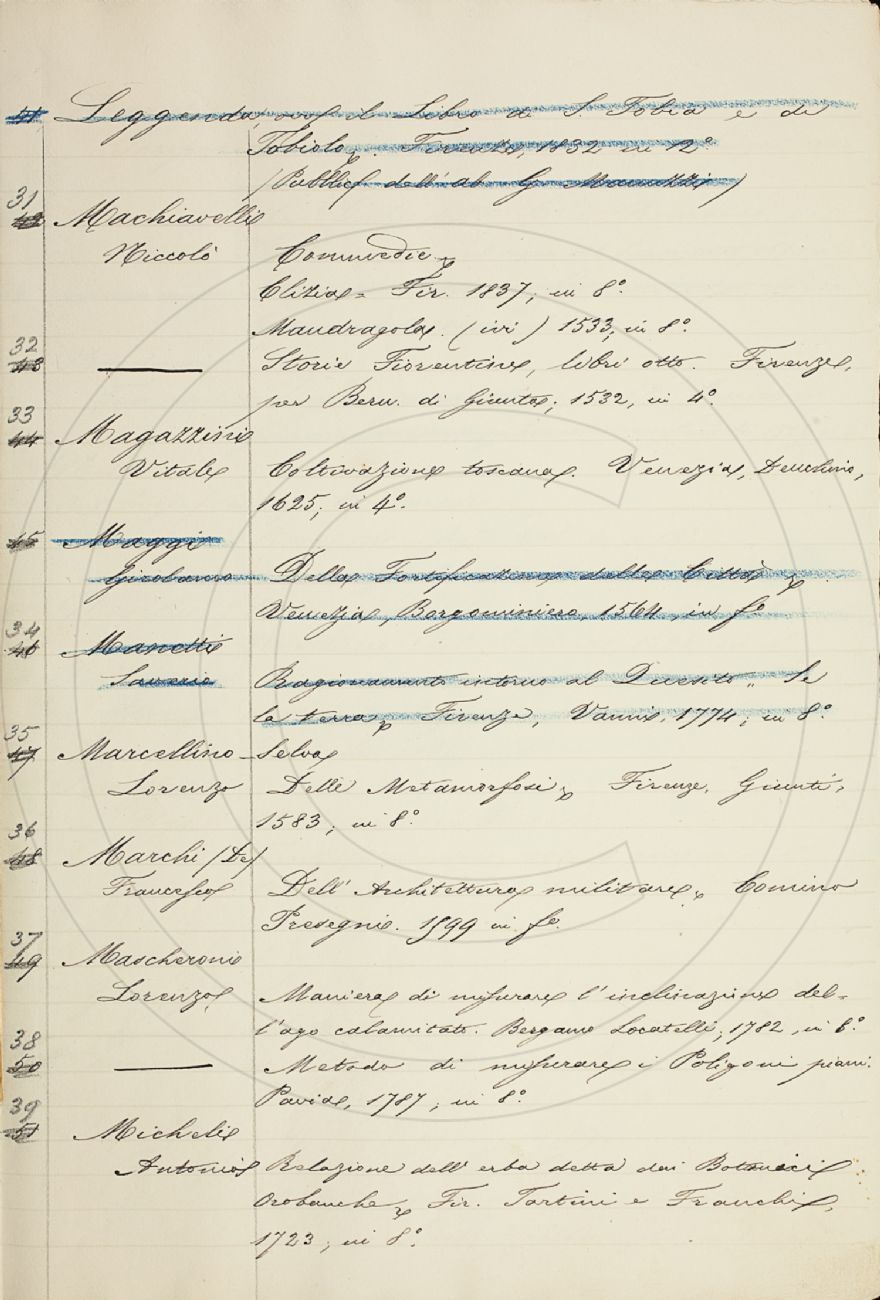 41 Leggenda, ossia il Libro di S. Tobia e di
Tobiolo. Firenze, 1832 in 12°
(Pubblic. dell'ab. G. Manuzzi)
31
42 Machiavelli
Niccolò Commedie
Clizia = Fir. 1837; in 8°.
Mandragola. (ivi) 1533; in 8°.
32
43 — Storie Fiorentine, libri otto. Firenze,
per Bern. di Giunta; 1532, in 4°.
33
44 Magazzini
Vitale Coltivazione toscana. Venezia, Deuchino,
1625; in 4°.
45 Maggi
Girolamo Della Fortificazione delle Città
Venezia, Borgominiero, 1564, in f°
34
46 Manetti
Saverio Ragionamento intorno al Quesito „ Se
la terra Firenze, Vanni, 1774; in 8°.
35
47 Marcellino Selva
Lorenzo Delle Metamorfosi Firenze, Giunti,
1583; in 8°.
36
48 Marchi (De)
Francesco Dell' Architettura militare, Comino
Presegni. 1599 in f°.
37
49 Mascheroni
Lorenzo Maniera di misurare l'inclinazione del-
l'ago calamitato. Bergamo Locatelli; 1782, in 8°.
38
50 — Metodo di misurare i Poligoni piani.
Pavia, 1787; in 8°.
39
51 Micheli
Antonio Relazione dell' erba detta dai Botanici
Orobanche Fir. Tartini e Franchi,
1723; in 8°.